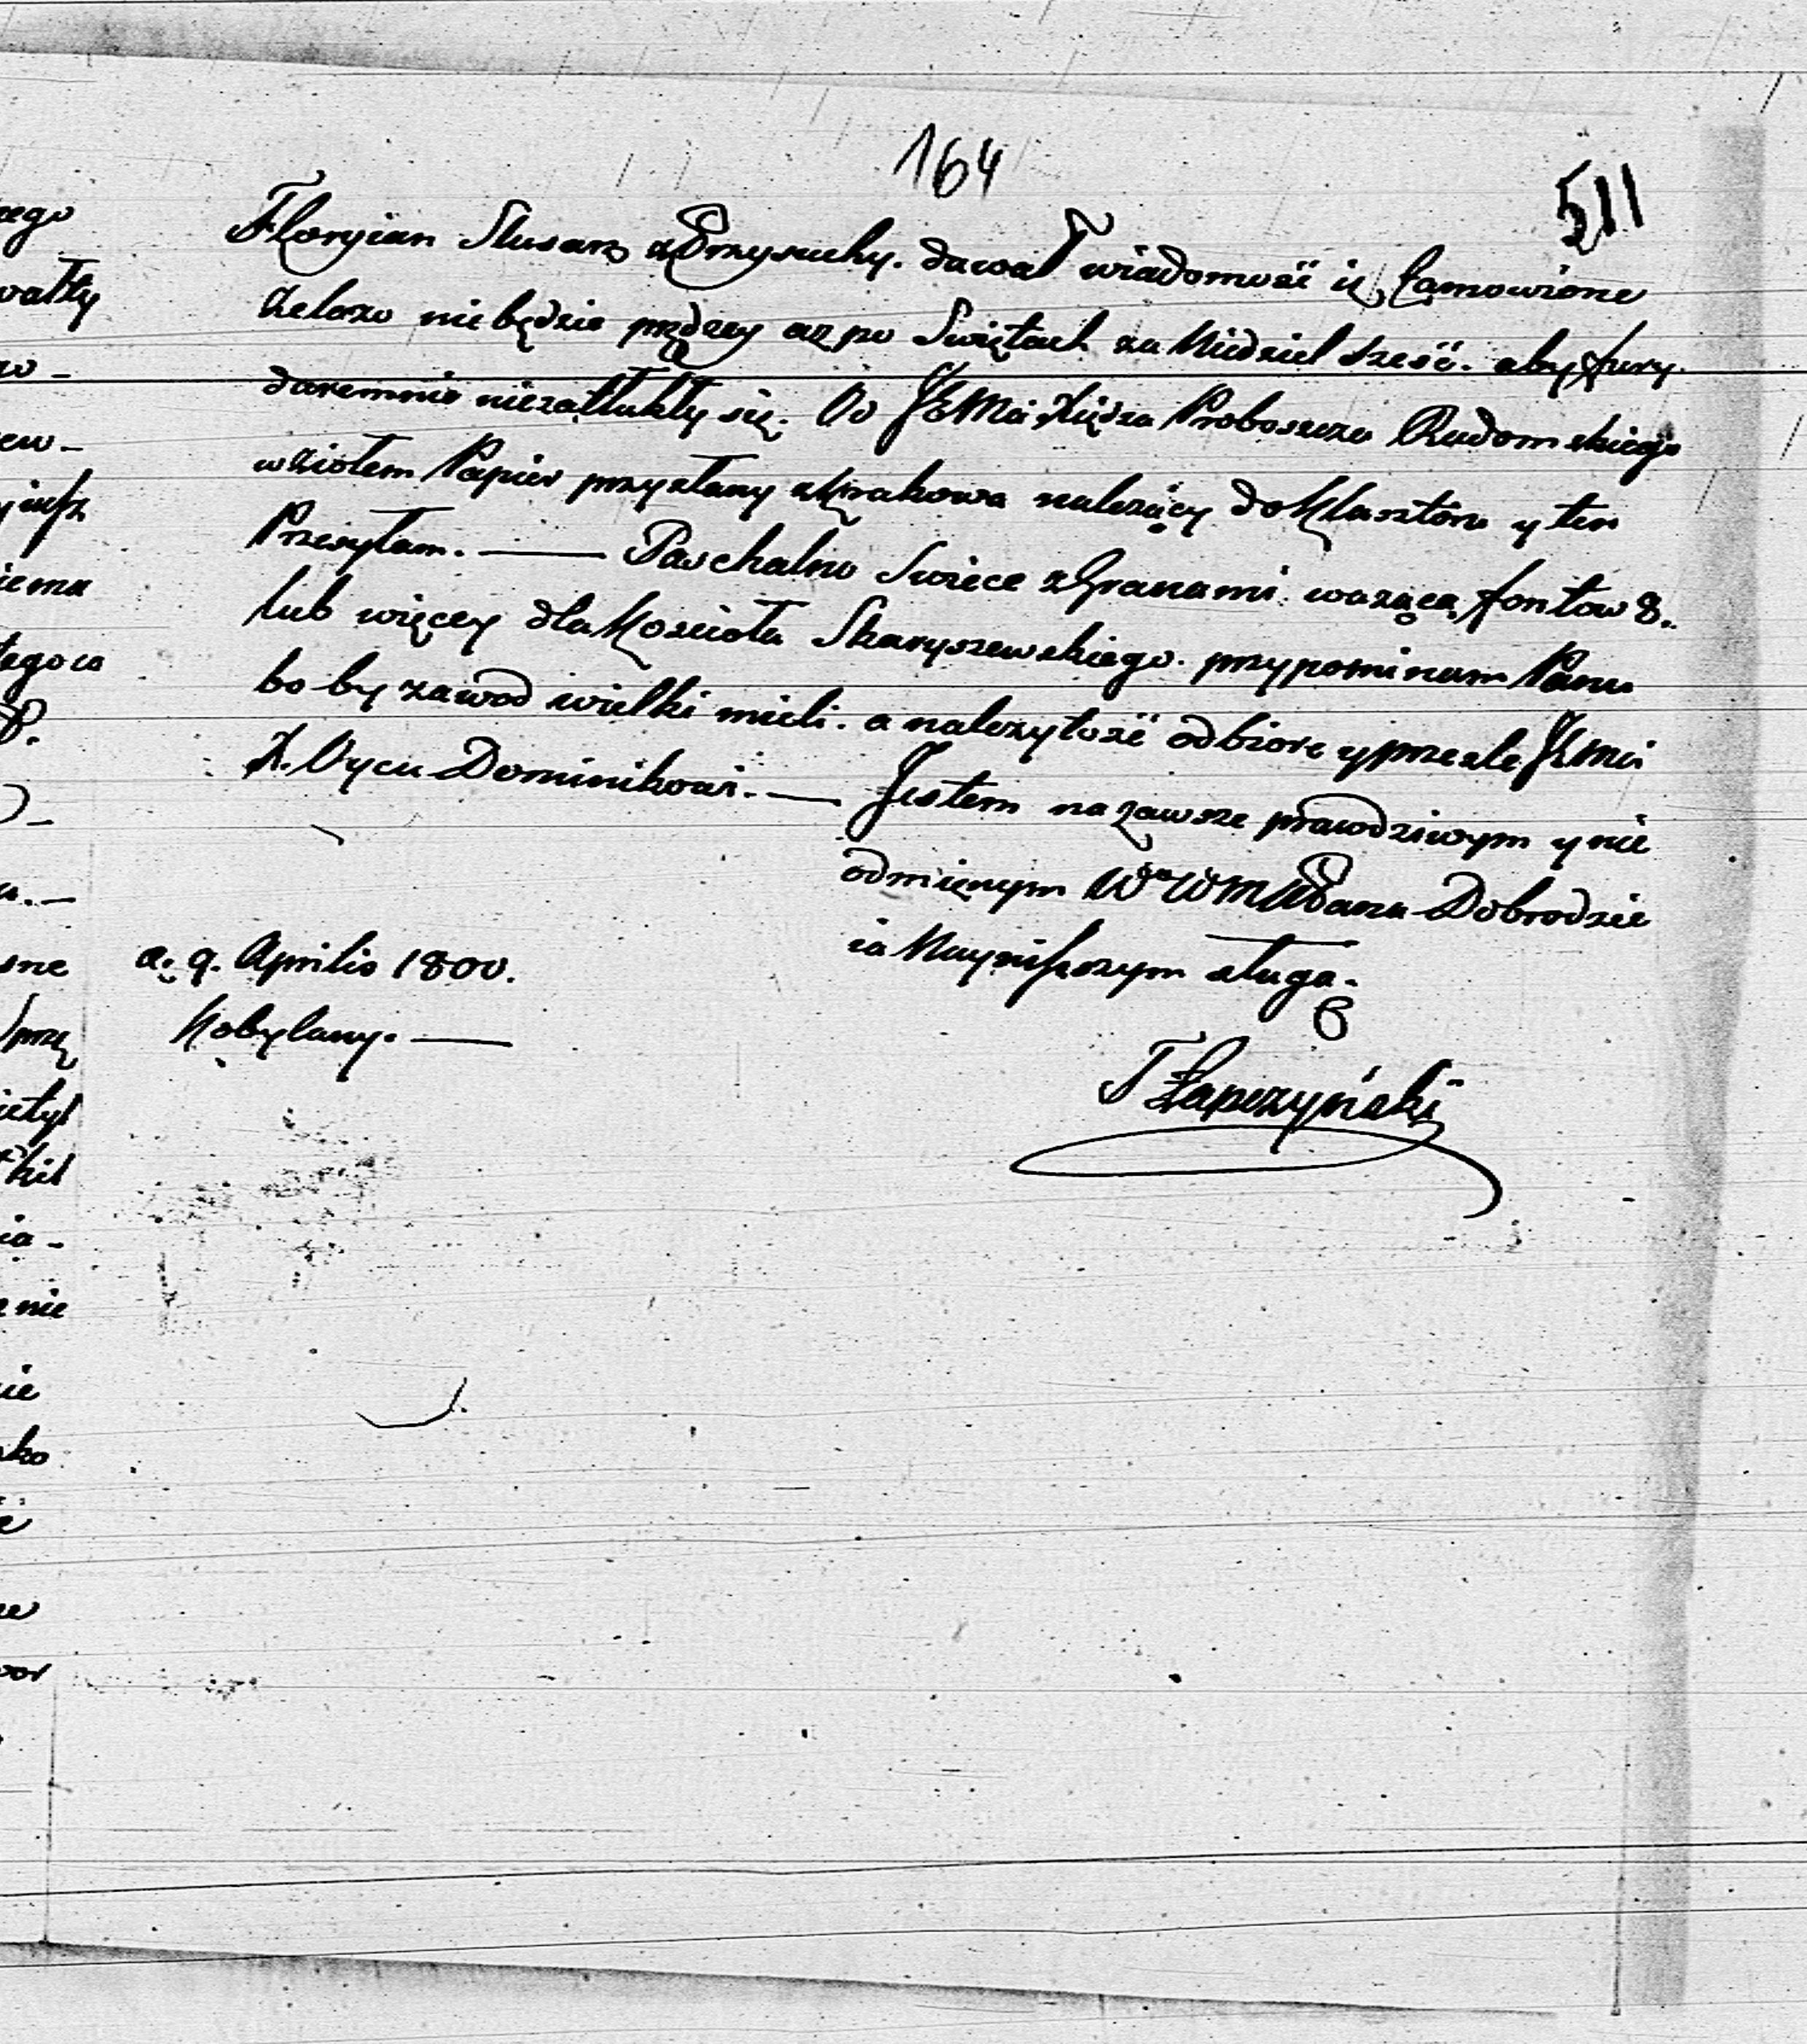 164
511
Floryian Slusarz z Przysuchy. dawał wiadomość iz zamowione
Zelazo niebędzie prędzey az po Swiętach za Niedziel sześć. aby fury
daremnie niezatłukły się. Od JEMci Xiędza Proboszcza Radomskiego
wziołem Papier przysłany z Krakowa nalezący do Klasztoru y ten
Przesyłam. — Paschalno Swiece z Granami. wazącą fontow 8.
lub więcey dla Kościoła Skaryszewskiego. przypominam Panu
bo by zawod wielki mieli. a nalezytość odbiorę y przesle JEMci
X. Oycu Dominikowi. — Jestem na zawsze prawdziwym y nie
odmięnym Pana Dobrodzie
ia Nayniszszym sługa.
a. 9. Aprilis 1800.
Kobylany. —
T Łapczyński
ego
wałty
ew-
iema
tego co
sne
prz
nie
ie
ko